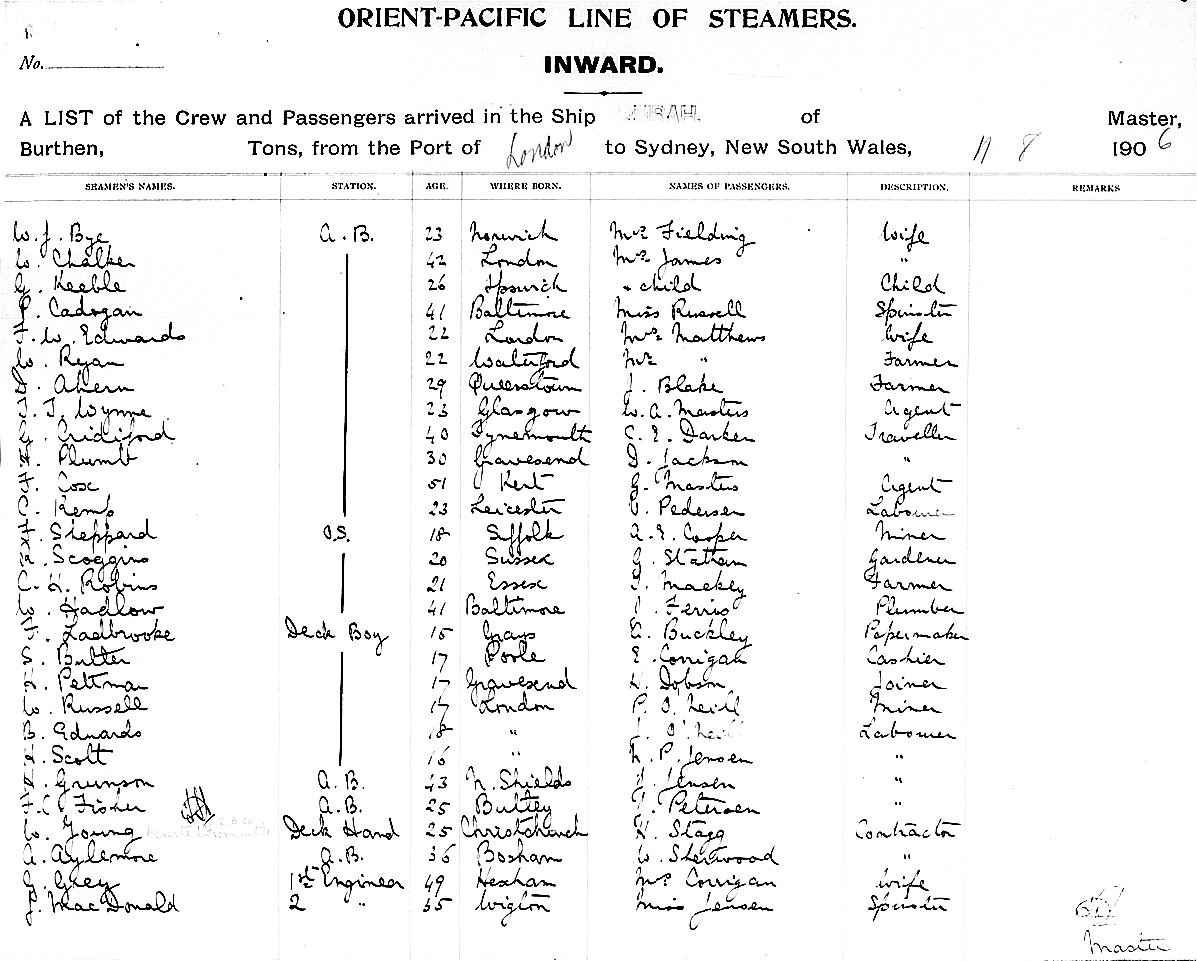 ORIENT-PACIFIC LINE OF STEAMERS.
No.
INWARD.
A LIST of the Crew and Passengers arrived in the Ship of Master,
Burthen, Tons, from the Port of London to Sydney, New South Wales, 11 8 1906
SEAMEN'S NAMES. STATION. AGE. WHERE BORN. NAMES OF PASSENGERS. DESCRIPTION. REMARKS
W. J. Bye A.B. 23 Norwich Mrs Fielding Wife
W. Chalker 42 London Mrs James "
G. Keeble 26 Ipswich " child Child
P. Cadogan 41 Baltimore Miss Russell Spinster
F. W. Edwards 22 London Mrs Matthews Wife
W. Ryan 22 Waterford Mr " Farmer
D. Ahern 29 Queenstown J. Blake Farmer
J. J. Wynne 23 Glasgow W. A. Masters Agent
G. Cridiford 40 Tynemouth C. E. Darken Traveller
H. Plumb 30 Gravesend D. Jackson "
H. Cox 51 Kent G. Masters Agent
C. Kemp 23 Leicester Pedersen Labourer
H. Sheppard O.S. 18 Suffolk A. E. Cooper Miner
Scoggins 20 Sussex G. Statham Gardener
C. H. Robins 21 Essex Mackey Farmer
W. Hadlow 41 Baltimore J. Ferris Plumber
F. Ladbrooke Deck Boy 15 Grays E. Buckley Papermaker
S. Butter 17 Poole E. Corrigan Cashier
H. Pettman 17 Gravesend H. Dobson Joiner
W. Russell 17 London P. O'Neill Miner
B. Edwards 18 " J. O'Neill Labourer
H. Scott 16 " N. P. Jensen "
Grunson A.B. 43 N. Shields J. Jensen "
F. C. Fisher A.B. 25 Butley Petersen "
W. Young Deck Hand 25 Christchurch H. Stagg Contractor
A. Aylemore A.B. 36 Bosham W. Sherwood "
G. Grey 1st Engineer 49 Hexham Mrs Corrigan Wife
J. MacDonald 2 " 35 Wigton Miss Jensen Spinster
Master